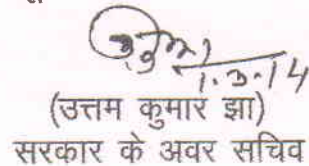 1.3.14
(उत्तम कुमार झा)
सरकार के अवर सचिव